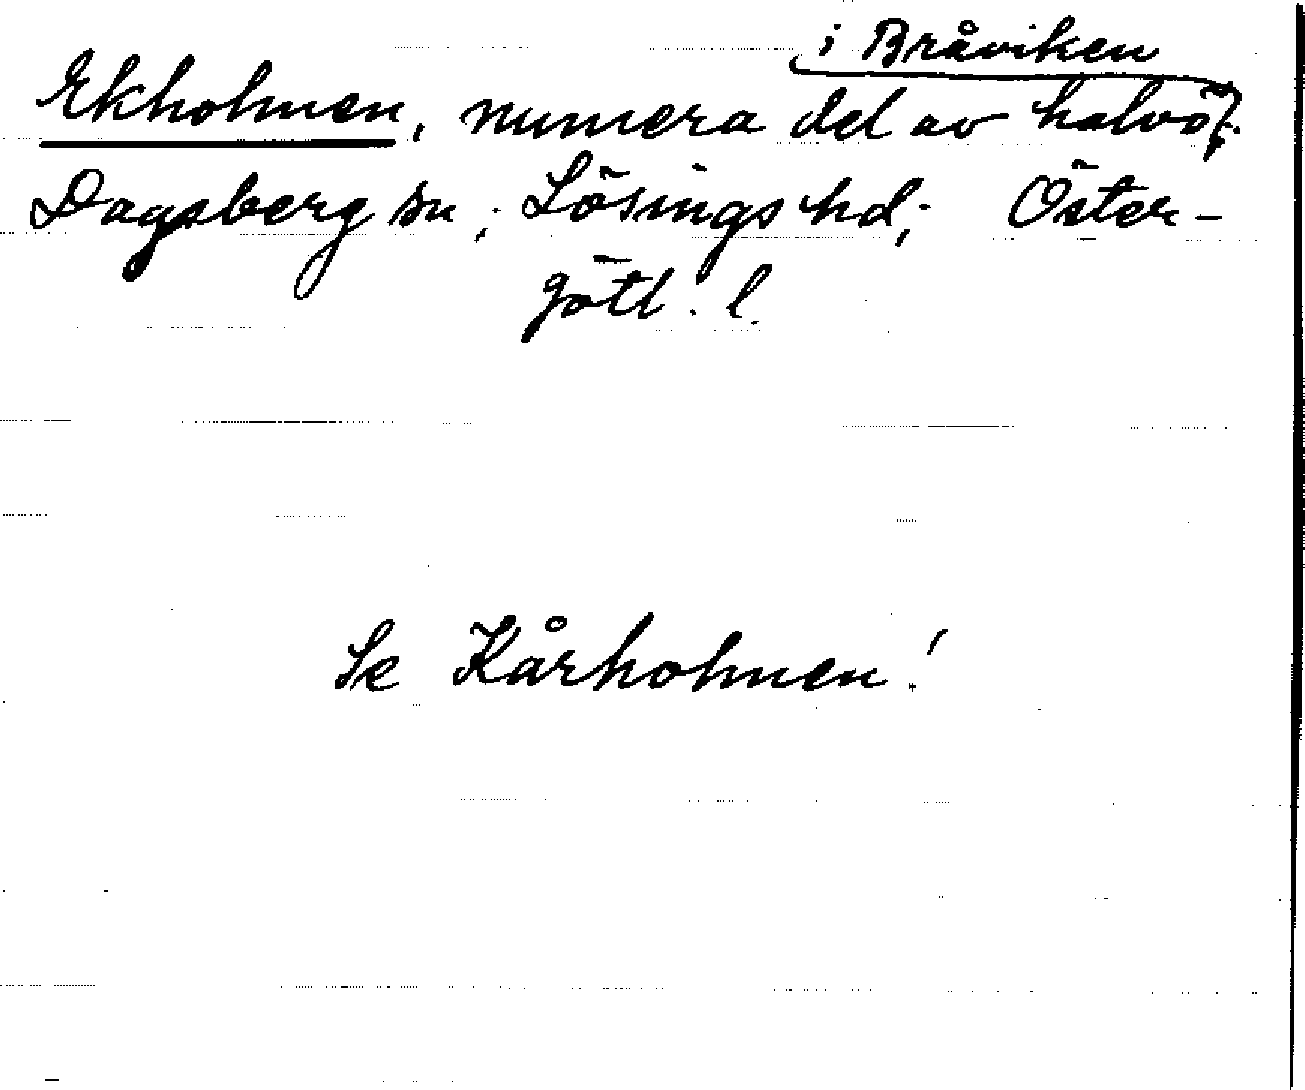 i Bråviken
Ekholmen, numera del av halvö,
Dagsberg sn; Lösings hd; Öster-
götl. l.
Se Kårholmen!